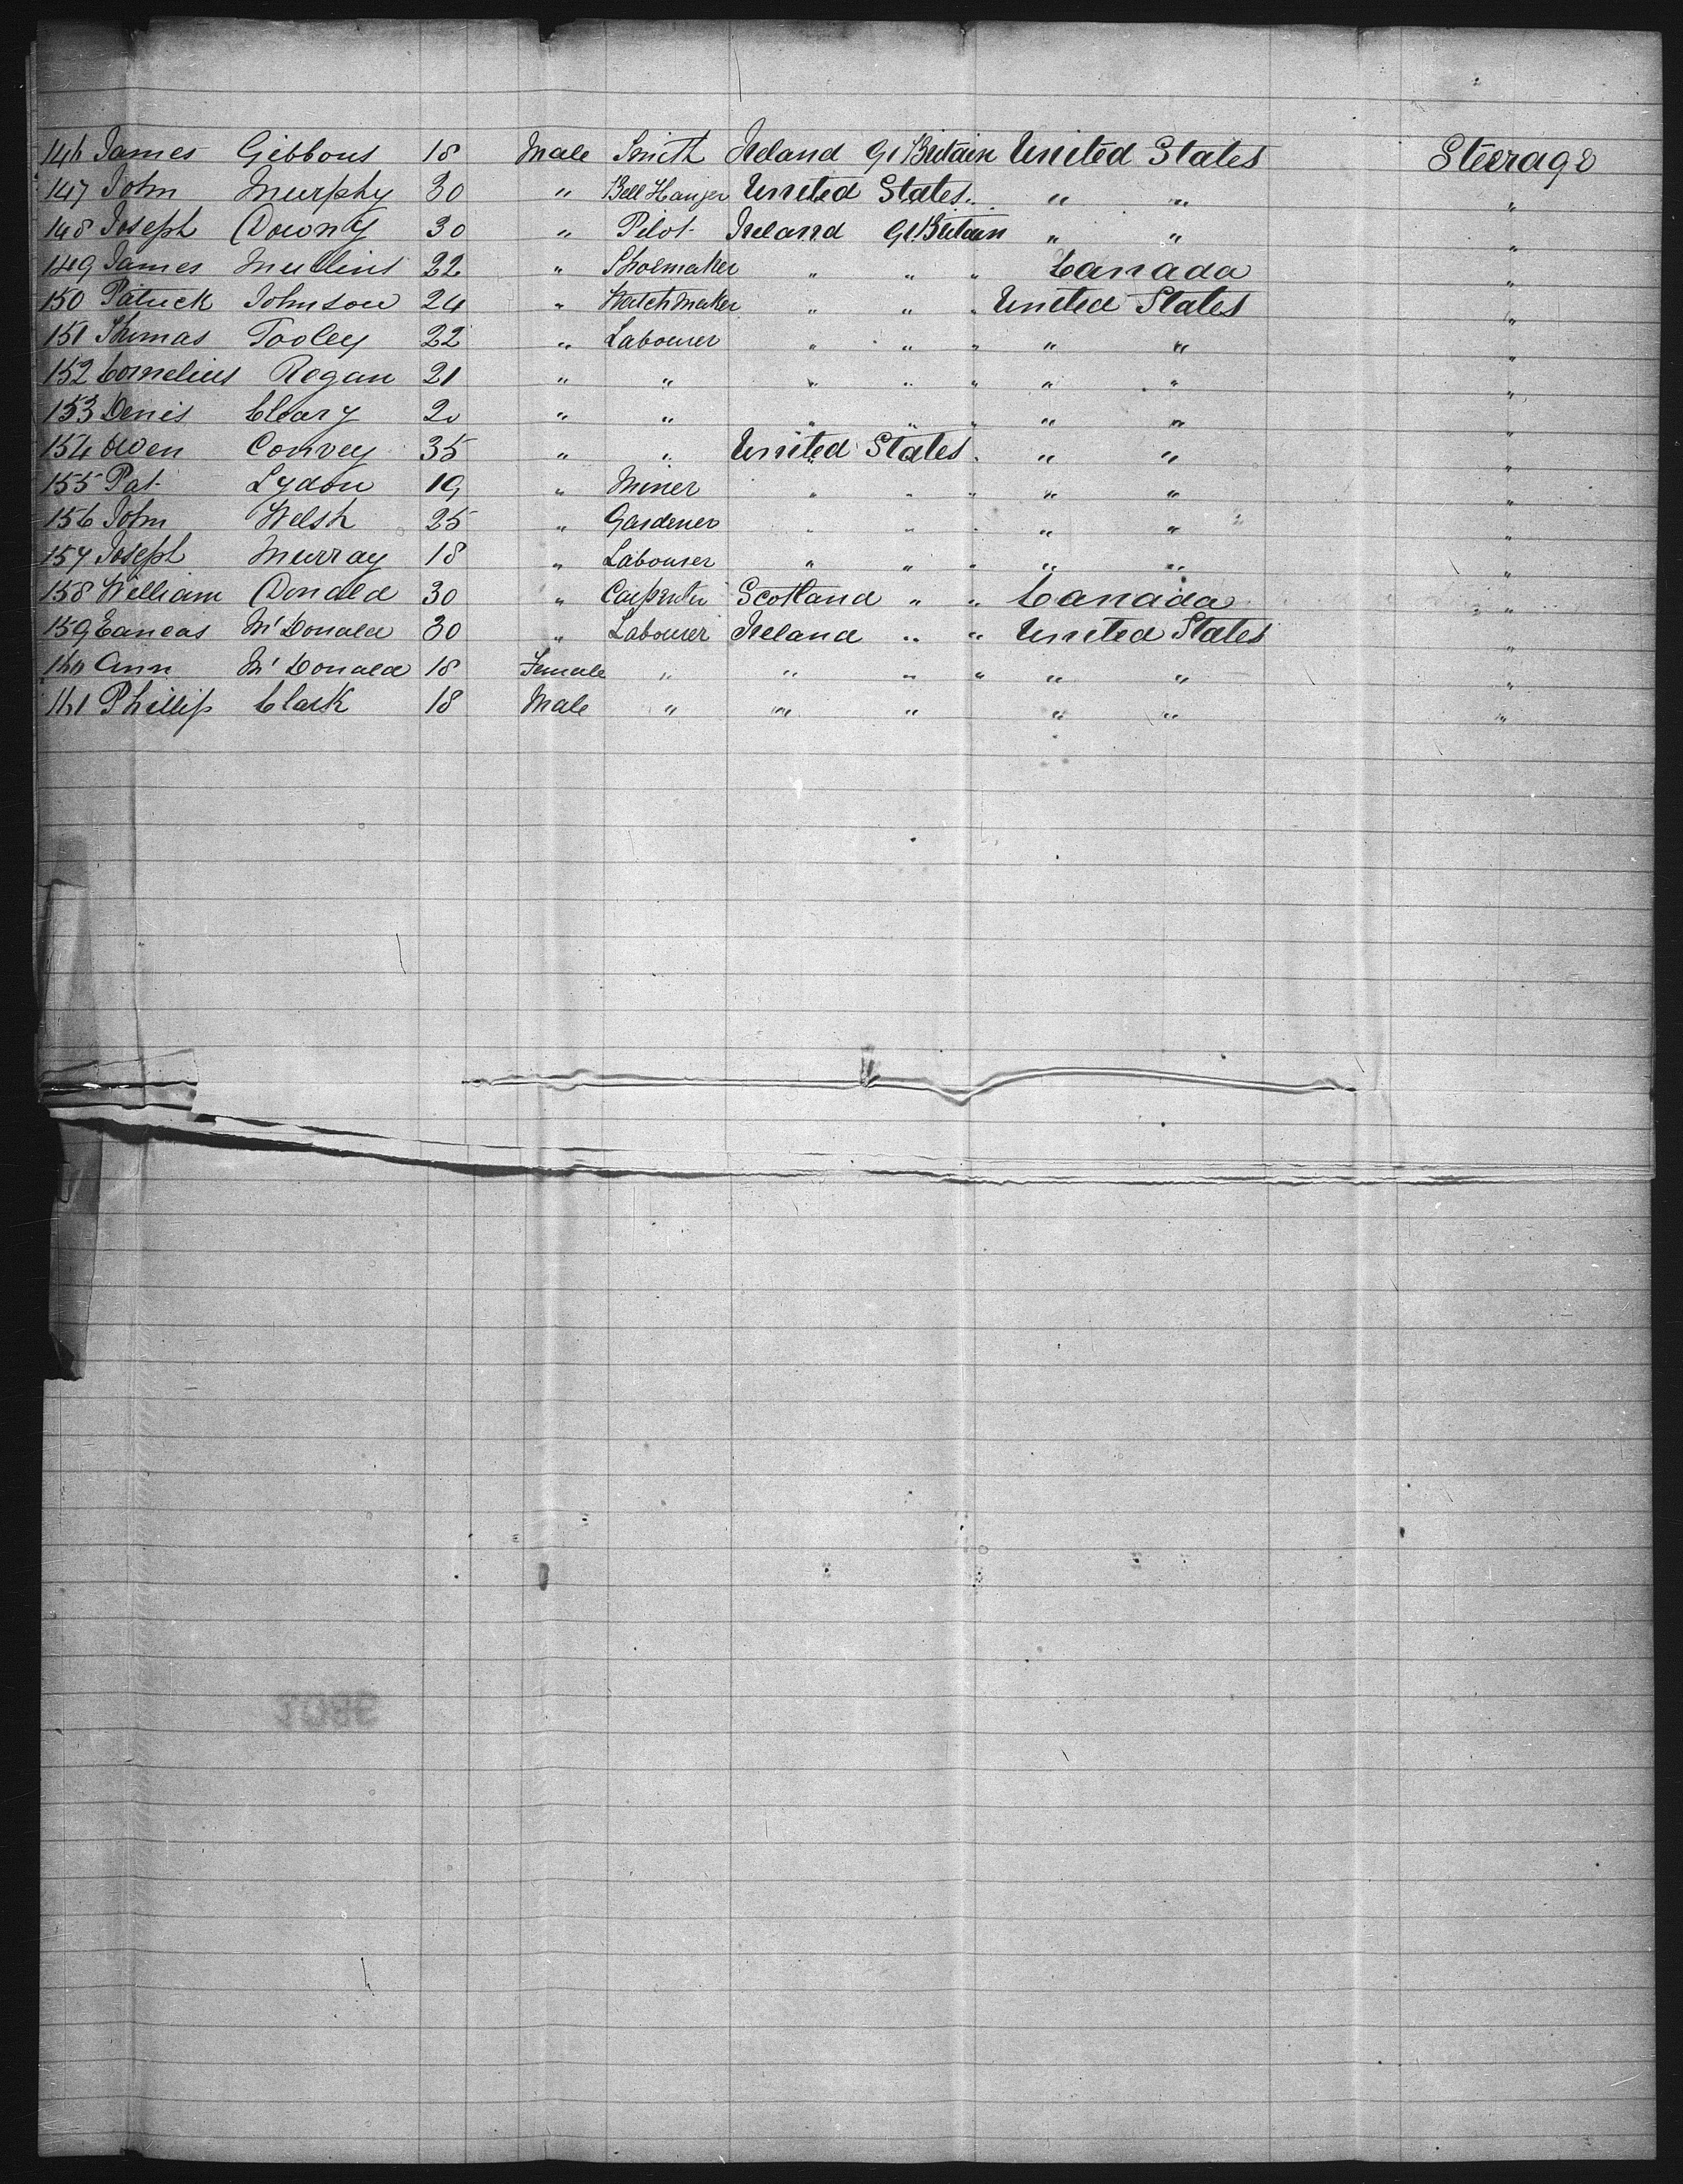 146 James Gibbons 18 Male Smith Ireland Gt Britain United States Steerage
147 John Murphy 30 " Bell Hanger United States " " " "
148 Joseph Downy 30 " Pilot Ireland Gt Britain " " "
149 James Mullins 22 " Shoemaker " " " Canada "
150 Patrick Johnson 24 " Watch Maker " " " United States "
151 Thomas Tooley 22 " Labourer " " " " " "
152 Cornelius Regan 21 " " " " " " " "
153 Denis Cleary 20 " " " " " " " "
154 Owen Convey 35 " " United States " " " "
155 Pat Lydon 19 " Miner " " " " " "
156 John Welsh 25 " Gardener " " " " " "
157 Joseph Murray 18 " Labourer " " " " " "
158 William Donald 30 " Carpenter Scotland " " Canada "
159 Eaneas McDonald 30 " Labourer Ireland " " United States "
160 Ann McDonald 18 Female " " " " " " "
161 Phillip Clark 18 Male " " " " " "